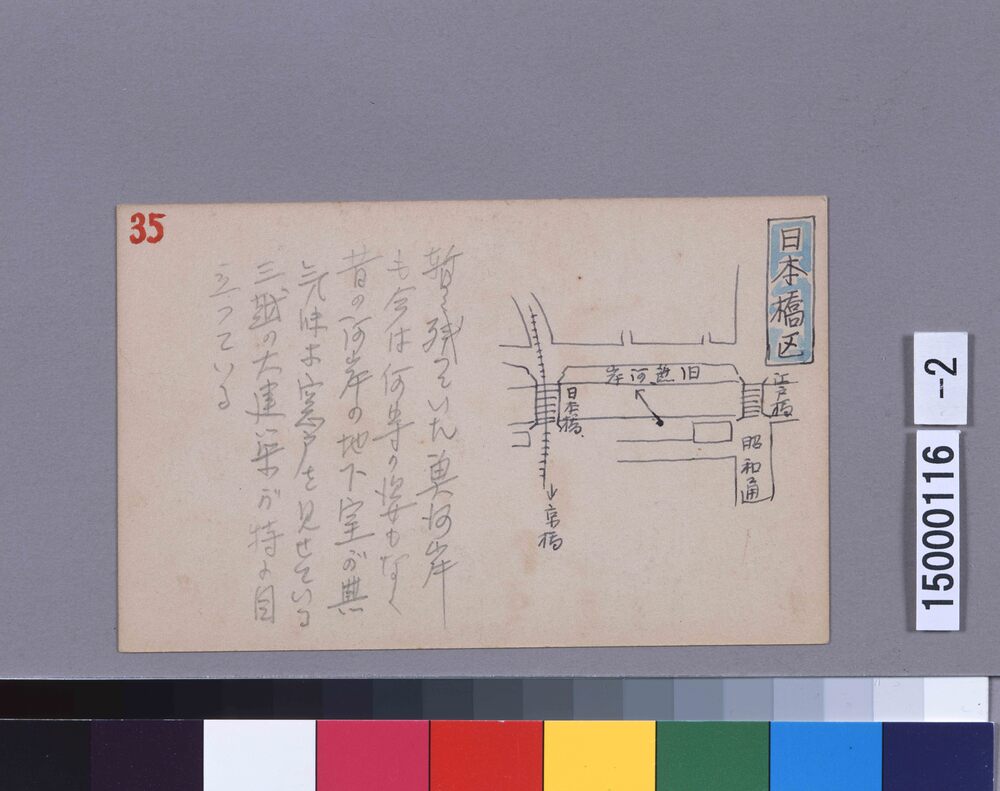 35
日本橋区
江戸橋
昭和通
旧魚河岸
日本橋
京橋
暫く残っていた魚河岸
も今は何等の姿もなく
昔の河岸の地下室が無
気味な窓を見せている
三越の大建築が特に目
立っている
15000116
-2